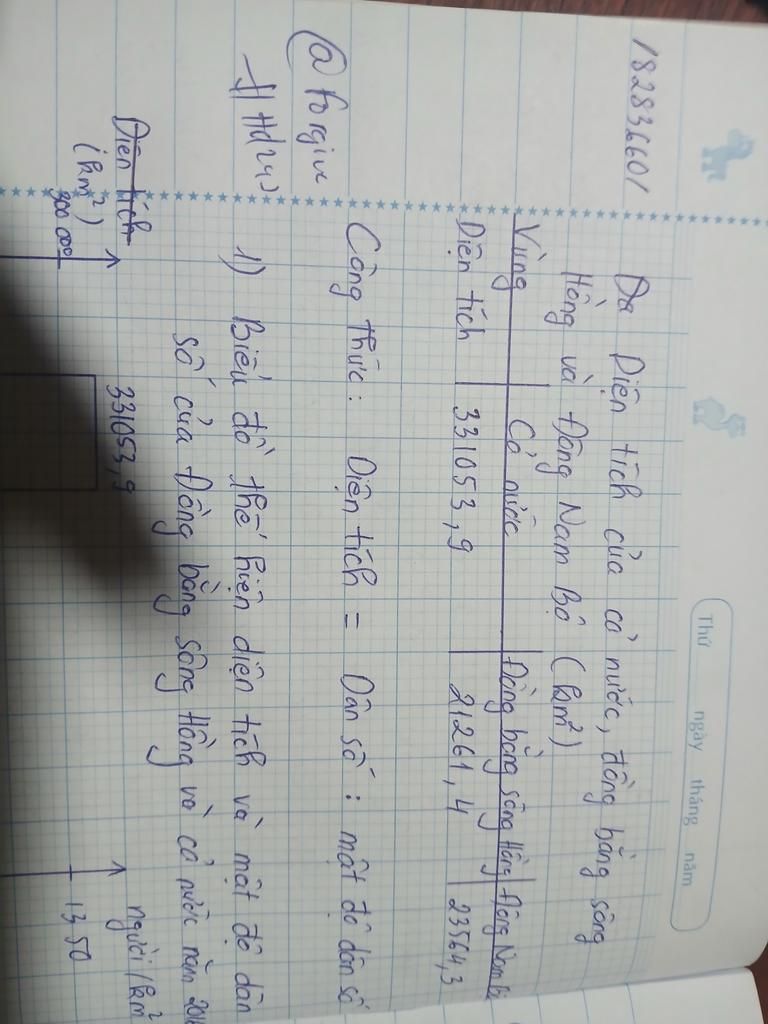 Thứ ngày tháng năm
182836601
Diện tích của cả nước, đồng bằng sông
Hồng và Đông Nam Bộ (km²)
Vùng Cả nước Đồng bằng sông Hồng Đông Nam Bộ
Diện tích 331053,9 21261,4 23564,3
Công thức: Diện tích = Dân số : mật độ dân số
@forgive
1) Biểu đồ thể hiện diện tích và mật độ dân
số của Đồng bằng sông Hồng và cả nước năm
Diện tích
(km²)
300 000
331053,9
người/km²
1350